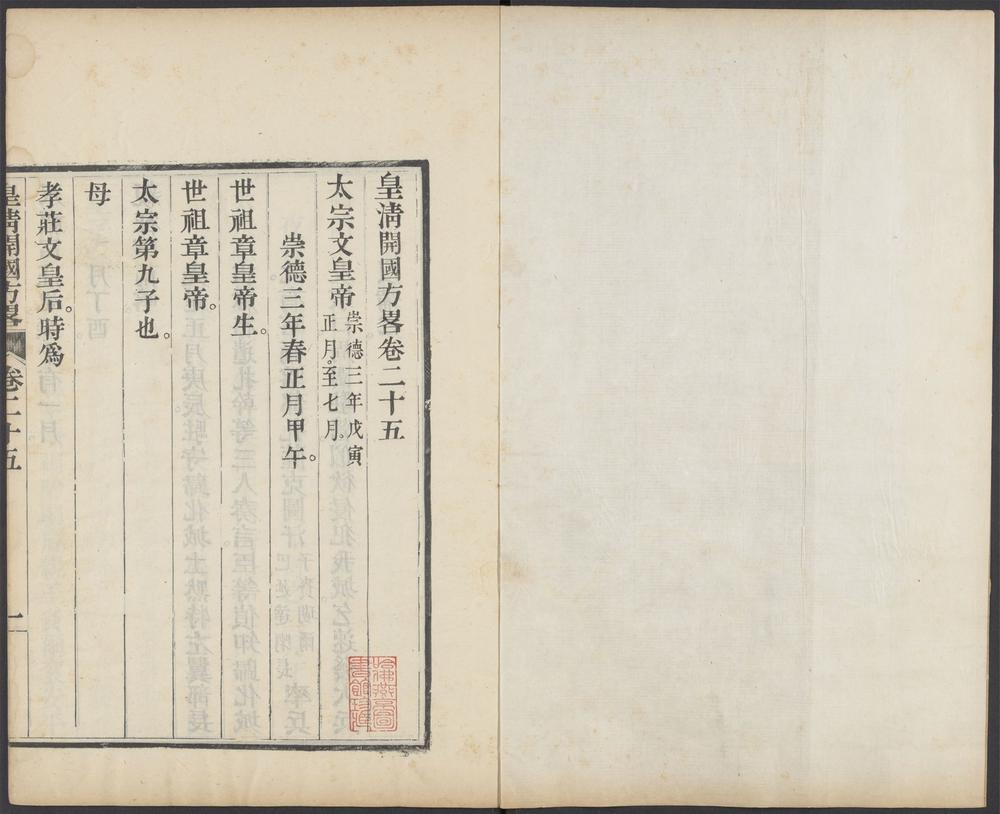 皇淸開國方畧卷二十五
太宗文皇帝崇德三年戊寅
正月至七月。
崇德三年春正月甲午。
世祖章皇帝生。
世祖章皇帝。
太宗第九子也。
母
孝莊文皇后。時爲
皇淸開國方畧 卷二十五 一
哈佛燕京圖書館珍藏